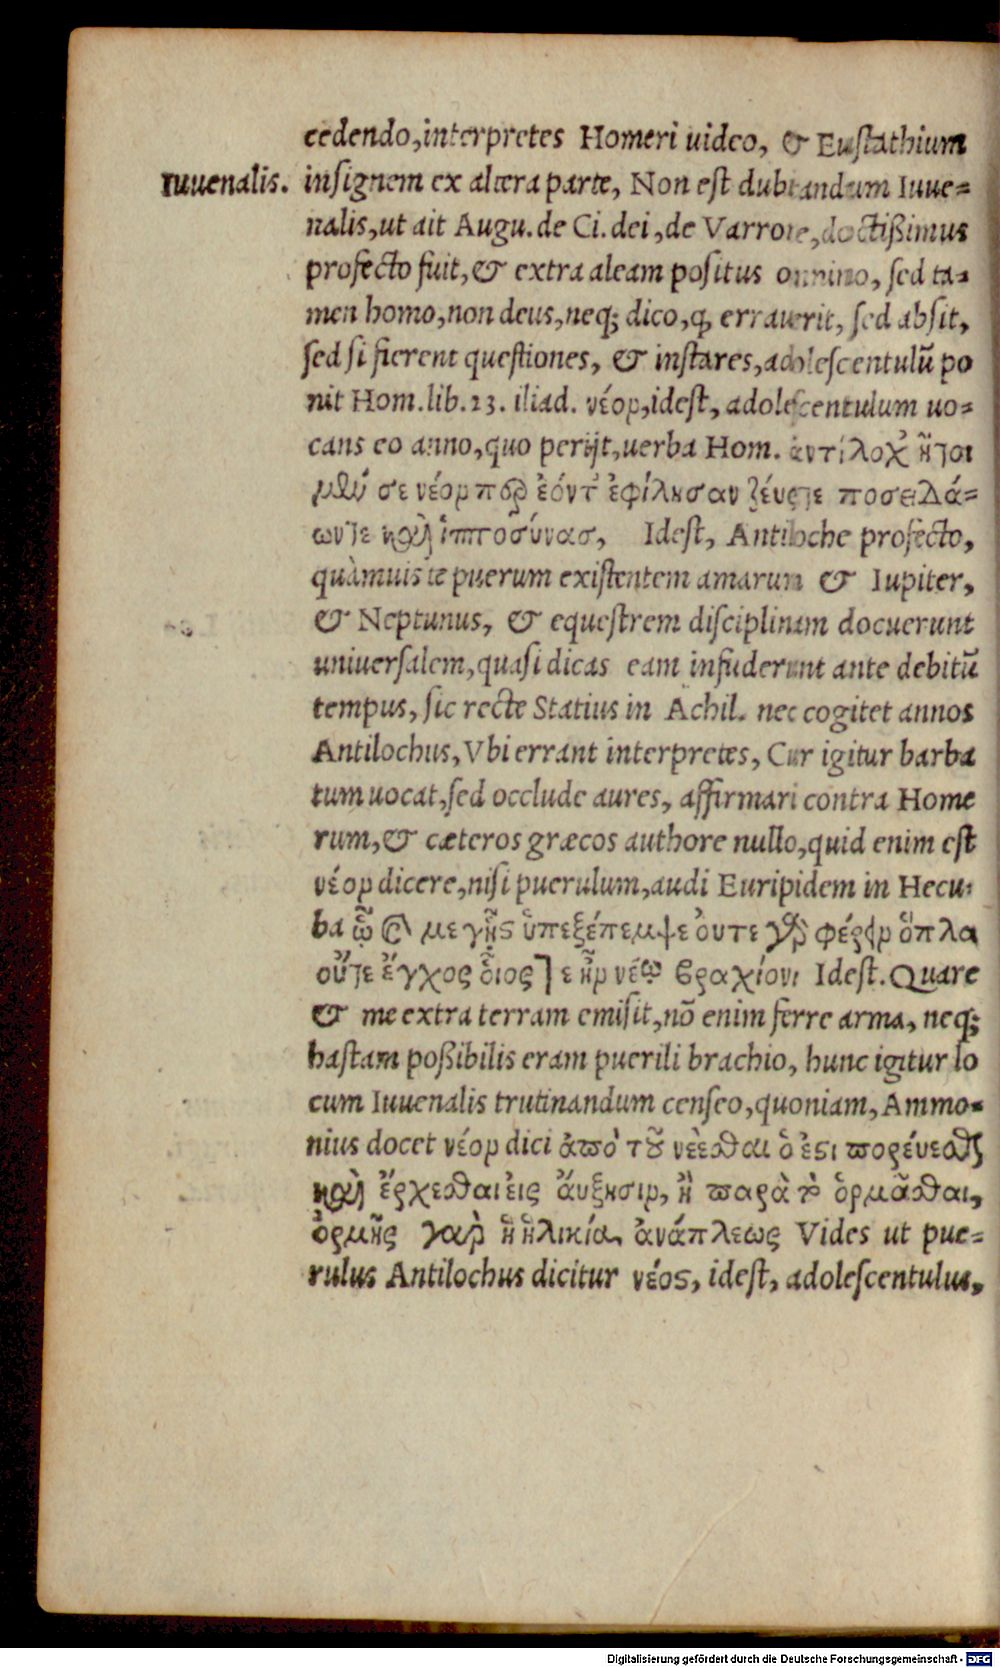 cedendo, interpretes Homeri uideo, & Eustathium
Iuuenalis. insignem ex altera parte, Non est dubitandum Iuue-
nalis, ut ait Augu. de Ci. dei, de Varrone, doctißimus
profecto fuit, & extra aleam positus omnino, sed ta-
men homo, non deus, neq; dico, q, errauerit, sed absit,
sed si fierent questiones, & instares, adolescentulū po
nit Hom. lib. 23. iliad. νέον, idest, adolescentulum uo-
cans eo anno, quo perijt, uerba Hom. ἀντίλοχ' ἤτοι
μὲν σε νέον περ ἐόντ' ἐφίλησαν ζέυςτε ποσειδά-
ωντε καὶ ἱπποσύνασ, Idest, Antiloche profecto,
quàmuis te puerum existentem amarunt & Iupiter,
& Neptunus, & equestrem disciplinam docuerunt
uniuersalem, quasi dicas eam infuderunt ante debitū
tempus, sic recte Statius in Achil. nec cogitet annos
Antilochus, Vbi errant interpretes, Cur igitur barba
tum uocat, sed occlude aures, affirmari contra Home
rum, & cæteros græcos authore nullo, quid enim est
νέον dicere, nisi puerulum, audi Euripidem in Hecu-
ba ᾧ καί με γῆς ὑπεξέπεμψε ὀυτε γὰρ φέρειν ὅπλα
οὔτε ἔγχος οἷος τε ἦν νέῳ βραχίονι Idest. Quare
& me extra terram emisit, nō enim ferre arma, neq;
hastam poßibilis eram puerili brachio, hunc igitur lo
cum Iuuenalis trutinandum censeo, quoniam, Ammo-
nius docet νέον dici ἀπὸ τοῦ νέεσθαι ὅ ἐστι πορέυεσθαι
καὶ ἔρχεσθαι εἰς ἄυξησιν, ἢ παρὰ τὸ ὁρμᾶσθαι,
ὁρμῆς γαρ ἡ ἡλικία ἀνάπλεως Vides ut pue-
rulus Antilochus dicitur νέος, idest, adolescentulus,
Digitalisierung gefördert durch die Deutsche Forschungsgemeinschaft - DFG